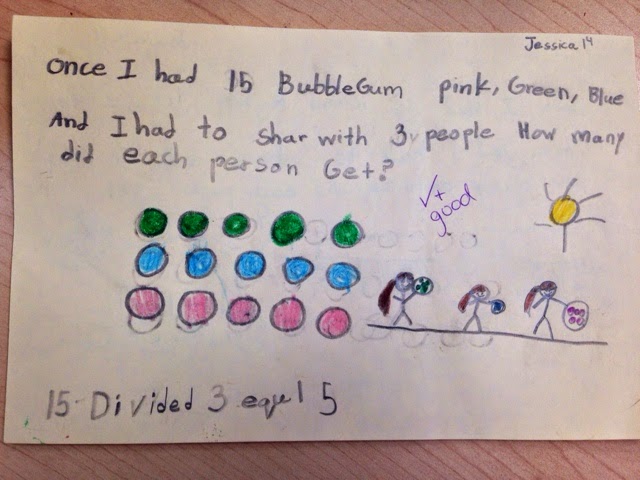 Jessica 14
Once I had 15 BubbleGum pink, Green, Blue
And I had to shar with 3 people How many
did each person Get?
√+
good
15 Divided 3 eqel 5